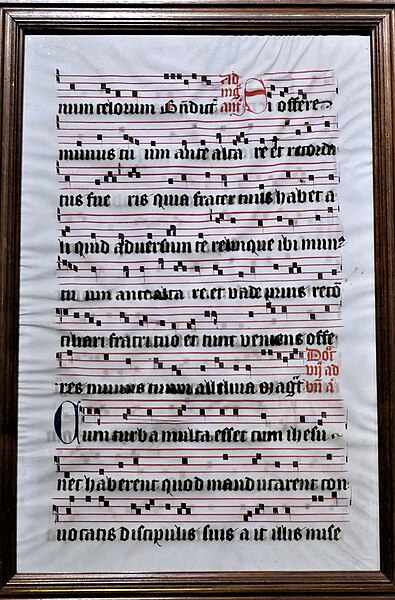 num celorum Bn̄dict̄ ad mg̃ ant̃ Si offere
munus tu um ante alta re et recorda
tus fue ris quia frater tuus habet a
li quid adversum te relinque ibi mun⁹
tu um ante alta re et vade prius recō
ciliari fratri tuo et tunc veniens offe
res munus tuum alleluia Dōi vij ad
Cum turba multa esset cum ihesu
nec haberent quod manducarent con
vocatis discipulis suis a it illis mise